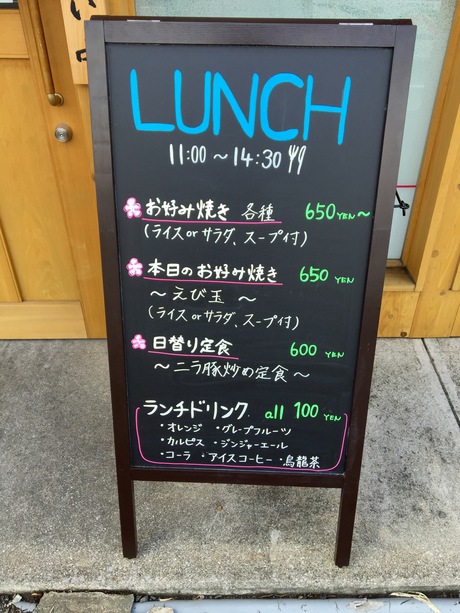 LUNCH
11:00 ～ 14:30
お好み焼き 各種 650 YEN～
(ライス or サラダ、スープ付)
本日のお好み焼き 650 YEN
～ えび玉 ～
(ライス or サラダ、スープ付)
日替り定食 600 YEN
～ ニラ豚炒め定食 ～
ランチドリンク all 100 YEN
・オレンジ ・グレープフルーツ
・カルピス ・ジンジャーエール
・コーラ ・アイスコーヒー ・烏龍茶